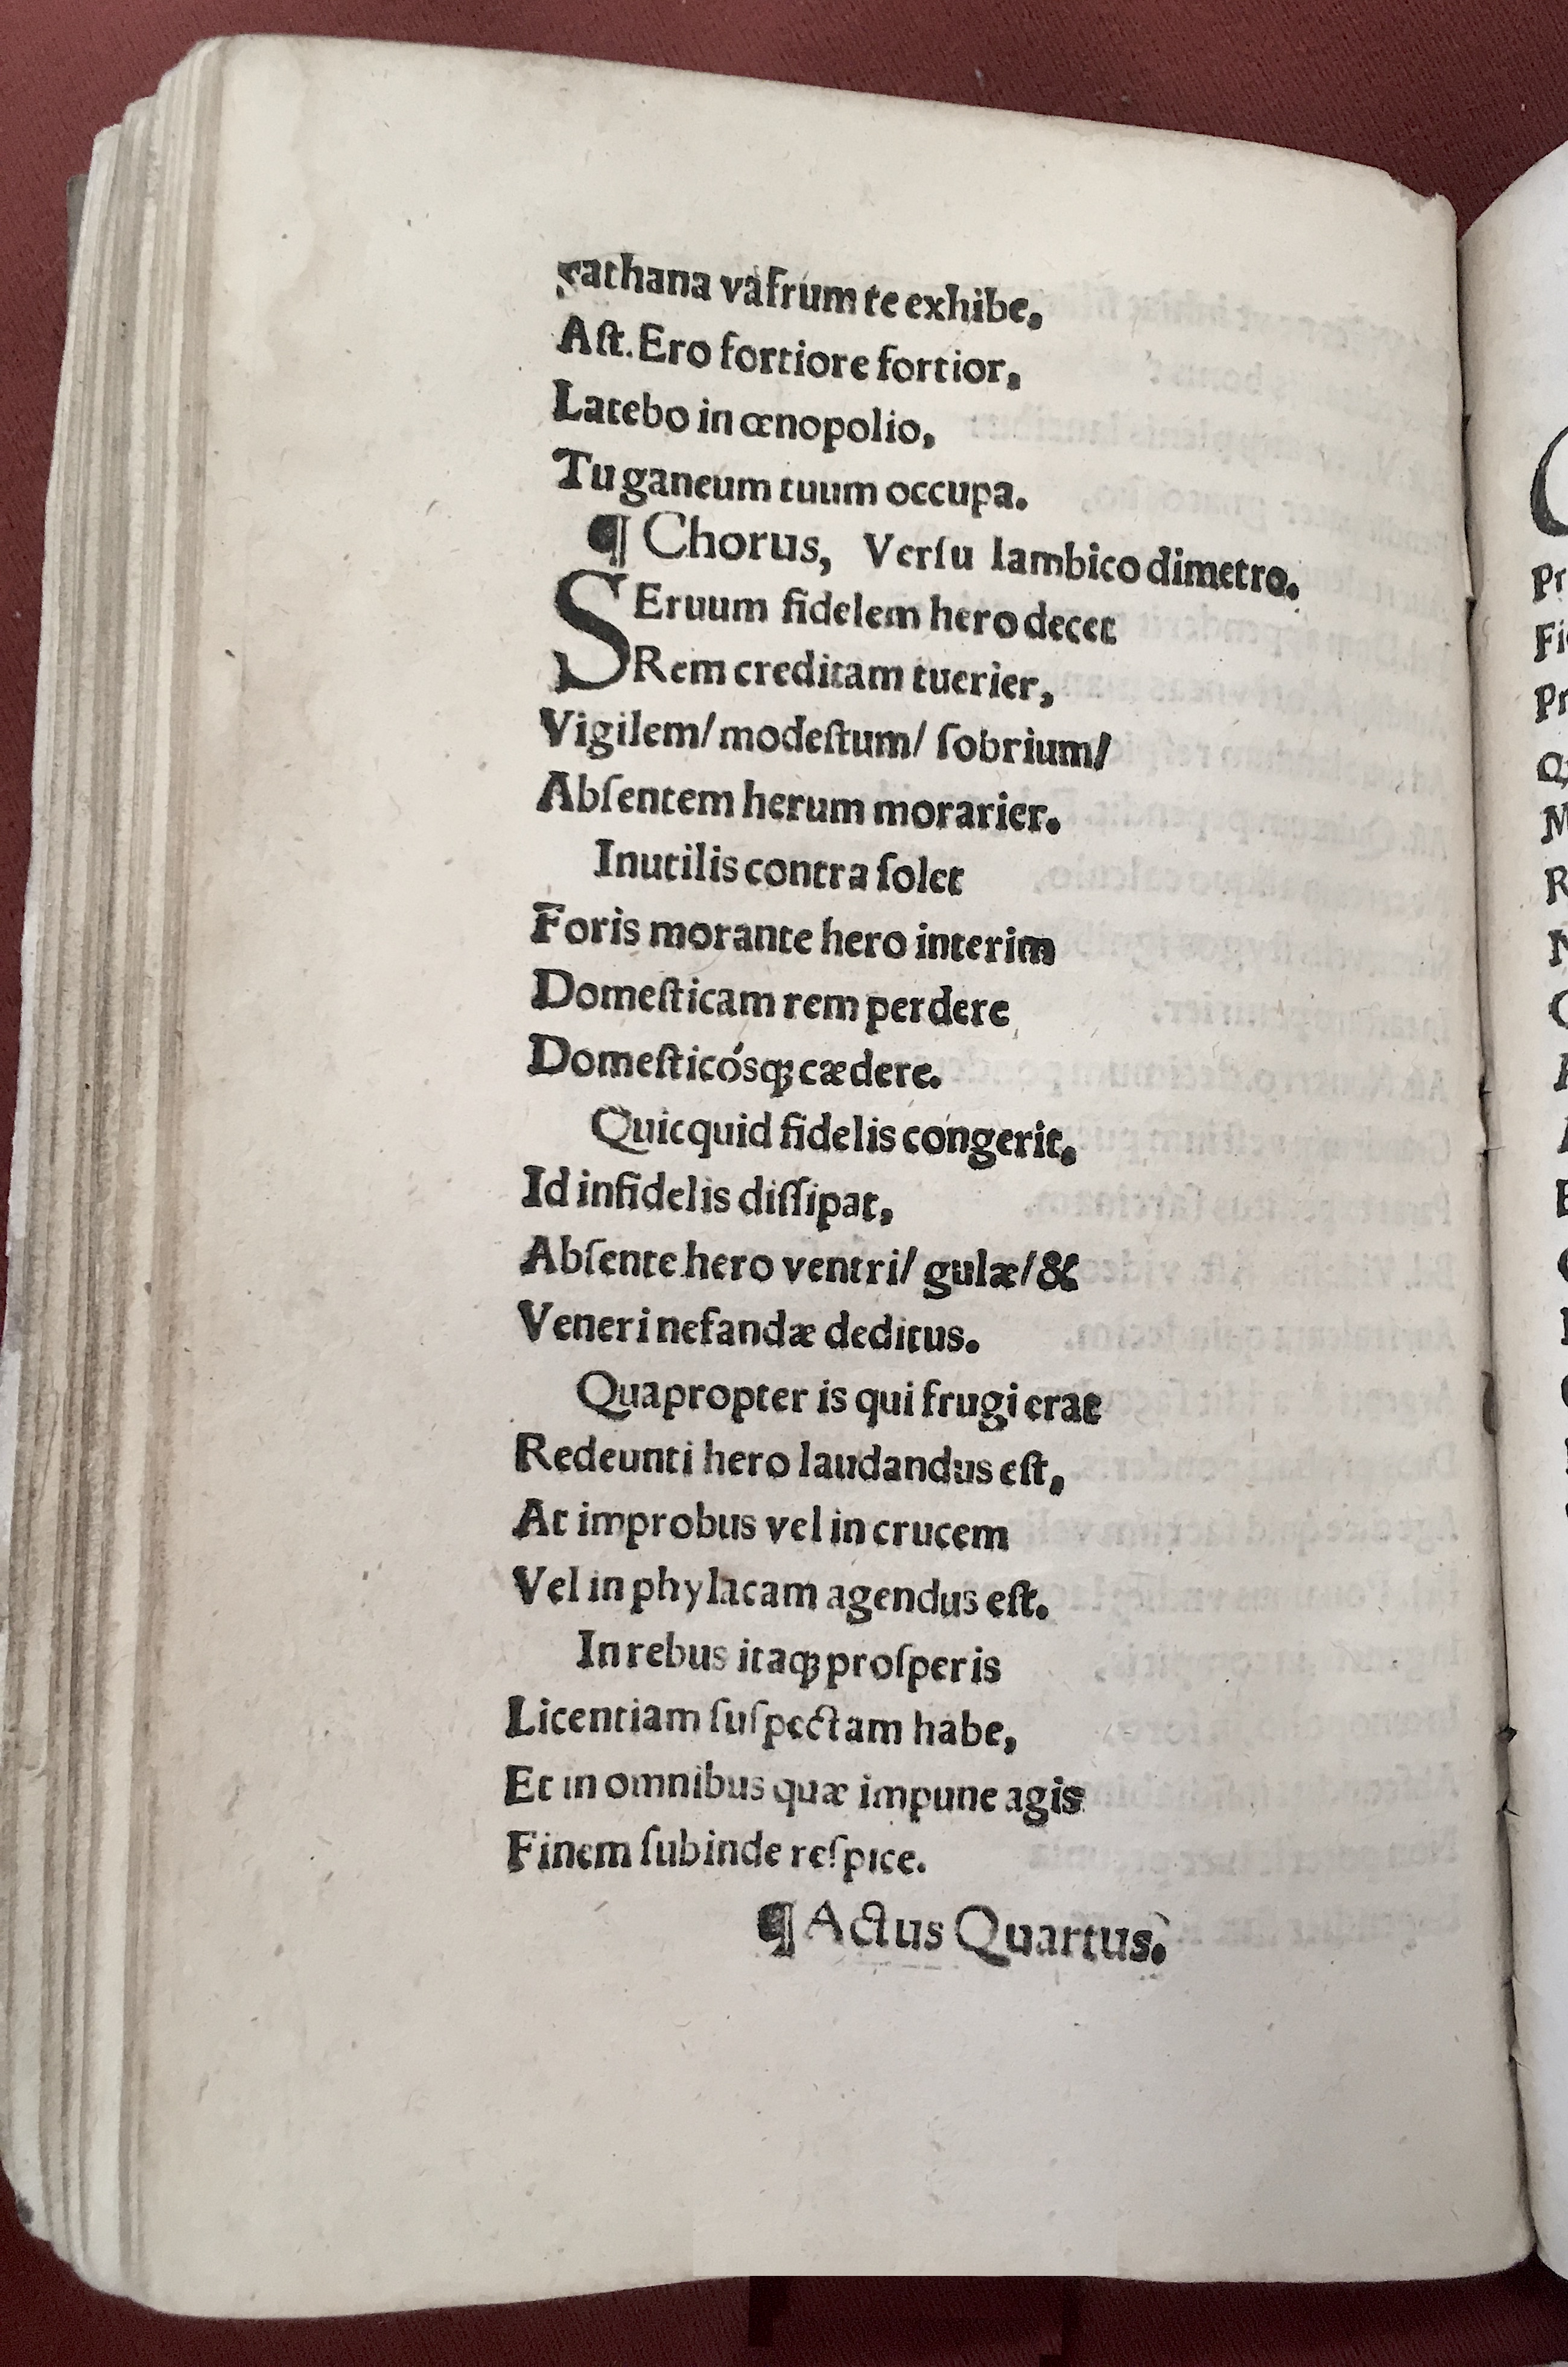 Sathana vafrum te exhibe,
Aſt. Ero fortiore fortior,
Latebo in œnopolio,
Tu ganeum tuum occupa.
¶ Chorus, Verſu Iambico dimetro.
SEruum fidelem hero decet
Rem creditam tuerier,
Vigilem/ modeſtum/ ſobrium/
Abſentem herum morarier.
Inutilis contra ſolet
Foris morante hero interim
Domeſticam rem perdere
Domeſticósqꝫ cædere.
Quicquid fidelis congerit,
Id infidelis diſſipat,
Abſente hero ventri/ gulæ/ &
Veneri nefandæ deditus.
Quapropter is qui frugi erat
Redeunti hero laudandus eſt,
At improbus vel in crucem
Vel in phylacam agendus eſt.
In rebus itaqꝫ proſperis
Licentiam ſuſpectam habe,
Et in omnibus quæ impune agis
Finem ſubinde reſpice.
¶ Actus Quartus.
Pr
Fi
Pr
M
R